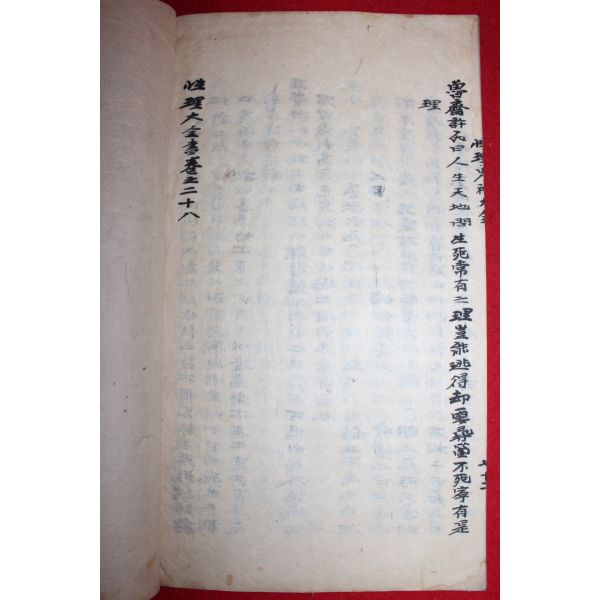 魯齋許氏曰人生天地間生死常有之理豈能逃得却要尋箇不死寧有是
理
性理大全書卷之二十八